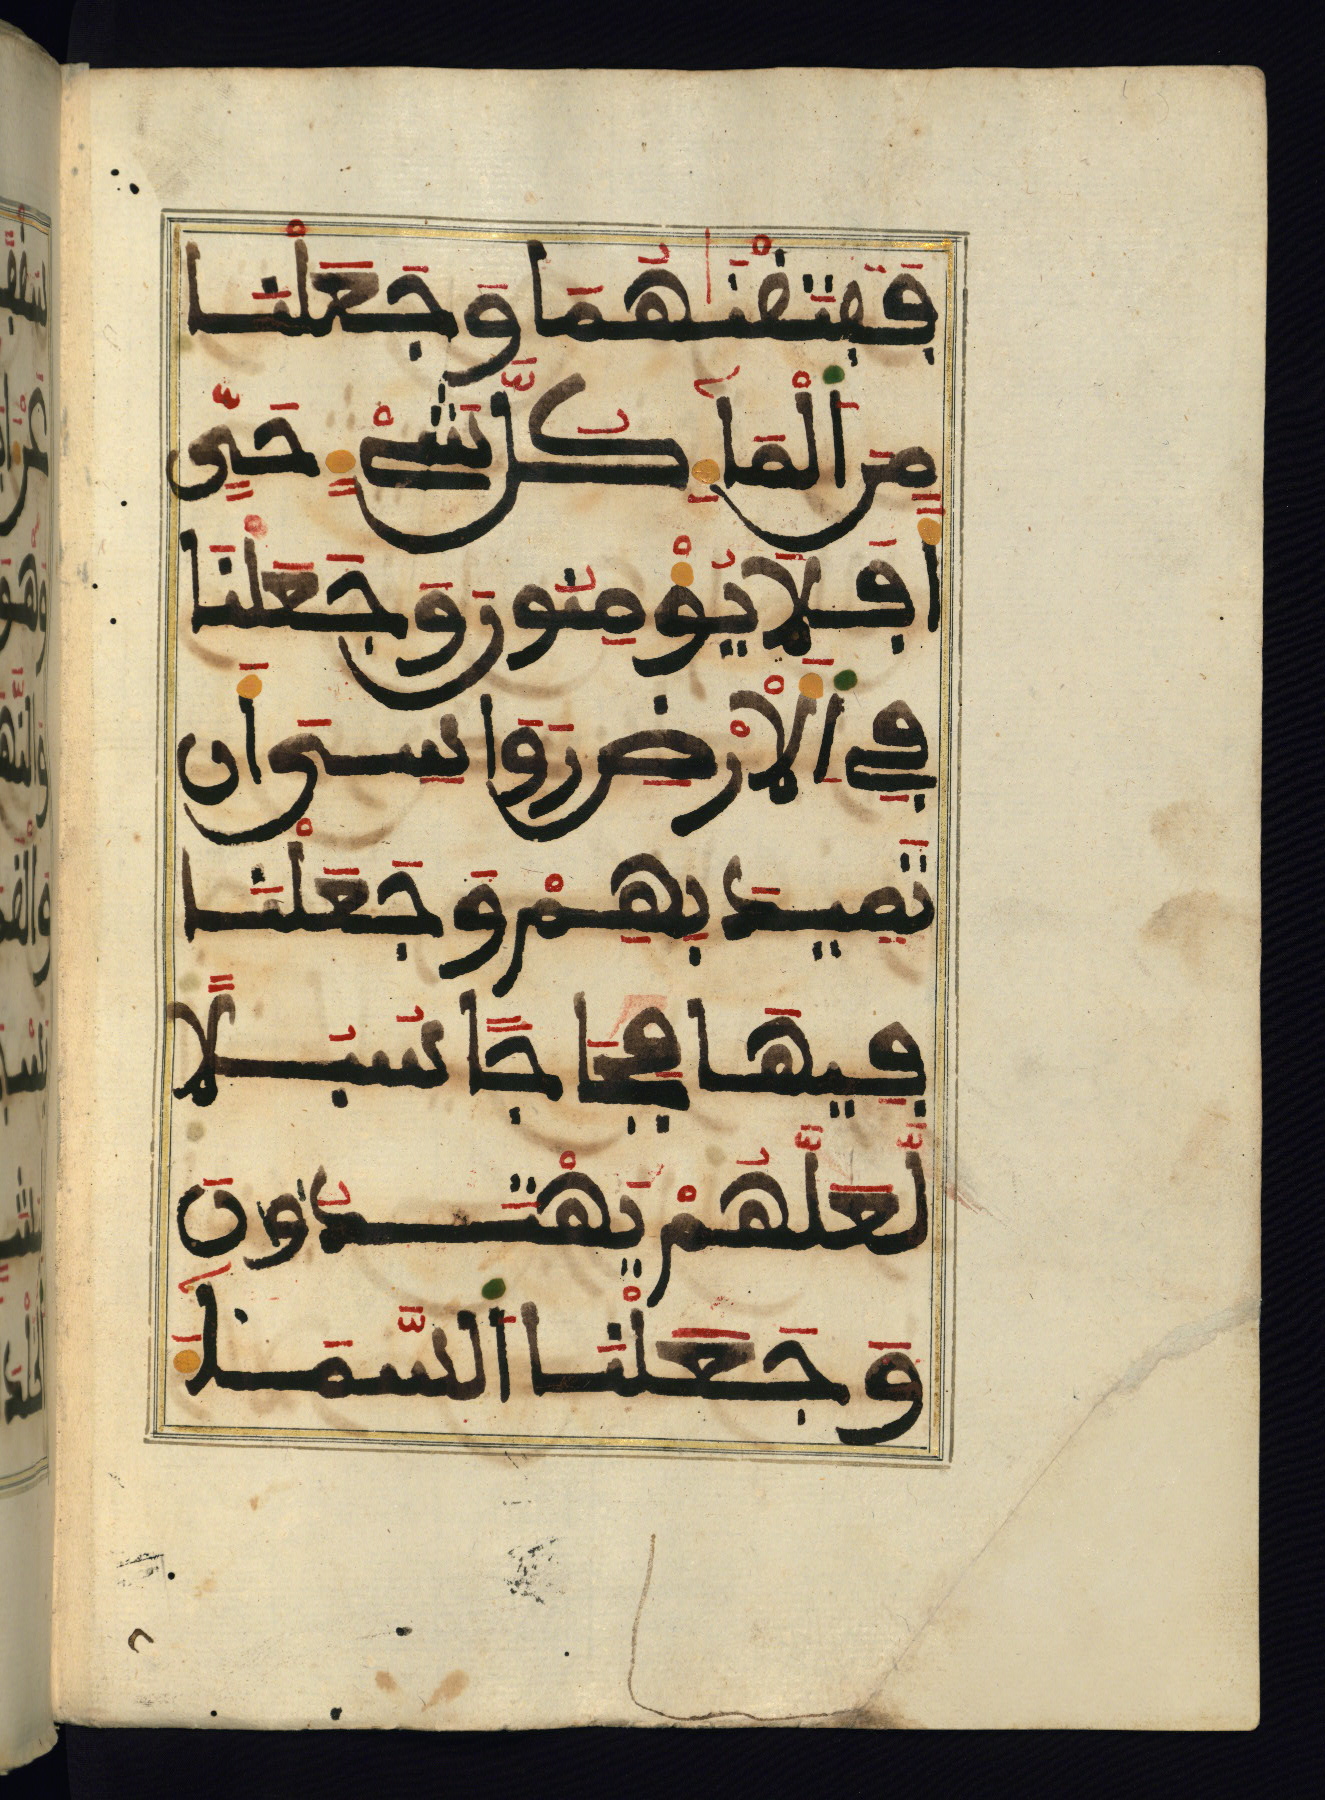 فَفَتَقْنَٰهُمَا وَجَعَلْنَا
مِنَ ٱلْمَآءِ كُلَّ شَےْءٍ حَيٍّ
اَفَلَا يُؤْمِنُونَ وَجَعَلْنَا
فِے ٱلْأَرْضِ رَوَٰسِيَ أَن
تَمِيدَ بِهِمْ وَجَعَلْنَا
فِيهَا فِجَاجاً سُبُلًا
لَّعَلَّهُمْ يَهْتَدُونَ
وَجَعَلْنَا ٱلسَّمَآءَ